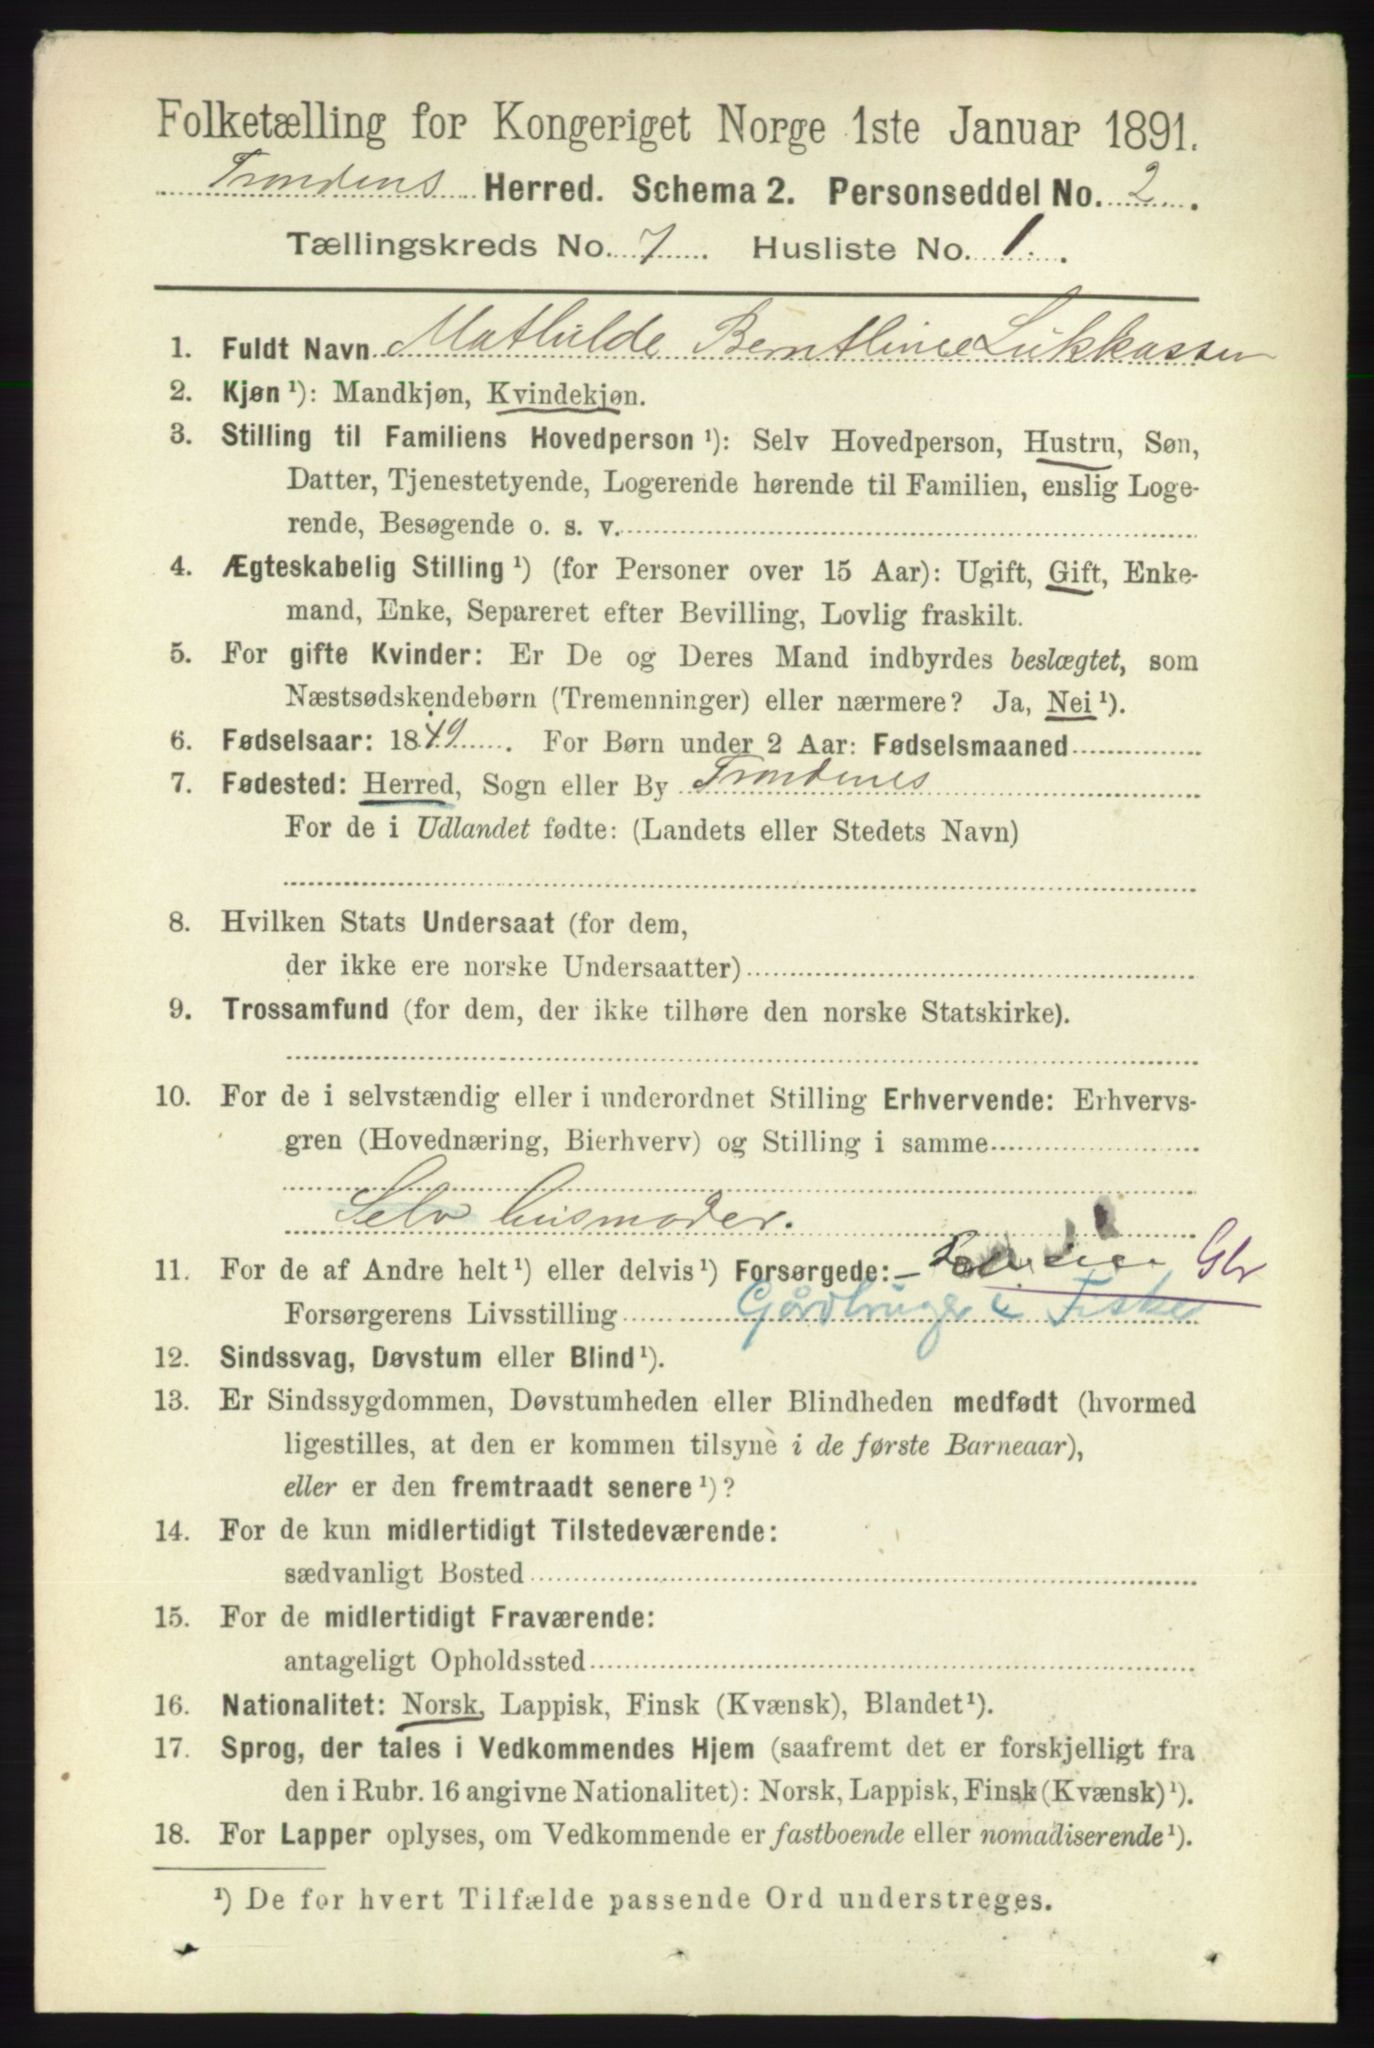 Folketælling for Kongeriget Norge 1ste Januar 1891.
Trondens Herred. Schema 2. Personseddel No. 2.
Tællingskreds No. 7. Husliste No. 1.
1. Fuldt Navn Mathilde Bentline Lukkassen
2. Kjøn ¹): Mandkjøn, Kvindekjøn.
3. Stilling til Familiens Hovedperson ¹): Selv Hovedperson, Hustru, Søn,
Datter, Tjenestetyende, Logerende hørende til Familien, enslig Loge-
rende, Besøgende o. s. v.
4. Ægteskabelig Stilling ¹) (for Personer over 15 Aar): Ugift, Gift, Enke-
mand, Enke, Separeret efter Bevilling, Lovlig fraskilt.
5. For gifte Kvinder: Er De og Deres Mand indbyrdes beslægtet, som
Næstsødskendebørn (Tremenninger) eller nærmere? Ja, Nei ¹).
6. Fødselsaar: 1849. For Børn under 2 Aar: Fødselsmaaned
7. Fødested: Herred, Sogn eller By Trondenes
For de i Udlandet fødte: (Landets eller Stedets Navn)
8. Hvilken Stats Undersaat (for dem,
der ikke ere norske Undersaatter)
9. Trossamfund (for dem, der ikke tilhøre den norske Statskirke).
10. For de i selvstændig eller i underordnet Stilling Erhvervende: Erhvervs-
gren (Hovednæring, Bierhverv) og Stilling i samme
Selv husmoder.
11. For de af Andre helt ¹) eller delvis ¹) Forsørgede: Gbr
Forsørgerens Livsstilling Gårdbruger & Fisker
12. Sindssvag, Døvstum eller Blind ¹).
13. Er Sindssygdommen, Døvstumheden eller Blindheden medfødt (hvormed
ligestilles, at den er kommen tilsyne i de første Barneaar),
eller er den fremtraadt senere ¹)?
14. For de kun midlertidigt Tilstedeværende:
sædvanligt Bosted
15. For de midlertidigt Fraværende:
antageligt Opholdssted
16. Nationalitet: Norsk, Lappisk, Finsk (Kvænsk), Blandet ¹).
17. Sprog, der tales i Vedkommendes Hjem (saafremt det er forskjelligt fra
den i Rubr. 16 angivne Nationalitet): Norsk, Lappisk, Finsk (Kvænsk) ¹).
18. For Lapper oplyses, om Vedkommende er fastboende eller nomadiserende ¹).
¹) De for hvert Tilfælde passende Ord understreges.